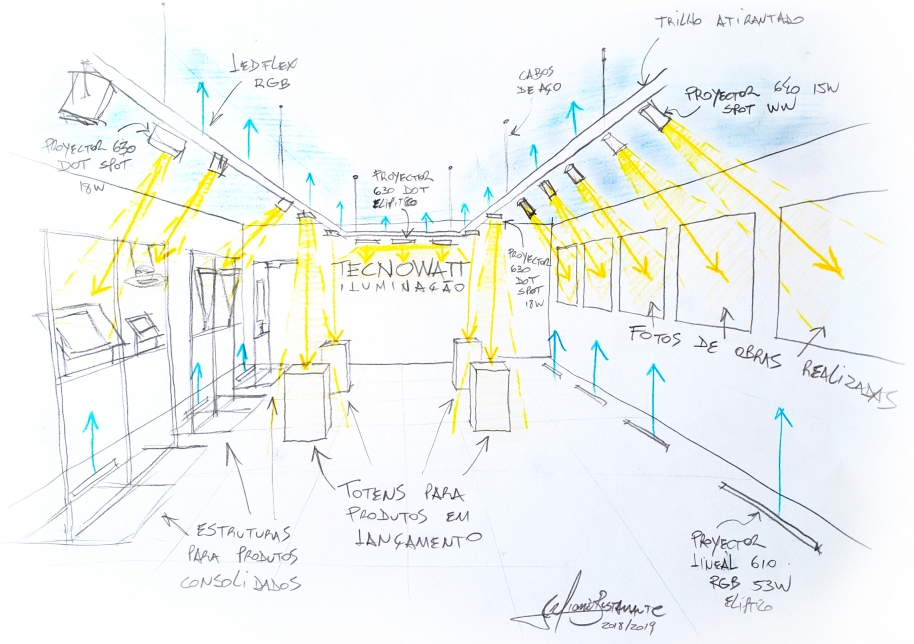 TRILHO ATIRANTADO
LEDFLEX
RGB
CABOS
DE AÇO
PROYECTOR 640 15W
SPOT WW
PROYECTOR 630
DOT SPOT
18W
PROYECTOR
630 DOT
ELIPTICO
TECNOWATT
ILUMINAÇÃO
PROYECTOR
630
DOT
SPOT
18W
FOTOS DE OBRAS REALIZADAS
TOTENS PARA
PRODUTOS EM
LANÇAMENTO
ESTRUTURAS
PARA PRODUTOS
CONSOLIDADOS
PROYECTOR
LINEAL 610
RGB 53W
BUSTAMANTE
2018/2019